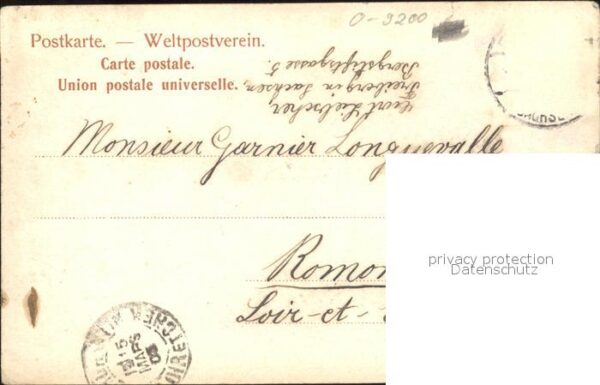 O-9200
Postkarte. — Weltpostverein.
Carte postale.
Union postale universelle.
Curt Liebscher,
Freiberg in Sachsen
Bergstiftsgasse 5.
Monsieur Garnier Longuevalle
privacy protection
Datenschutz
Romo
Loir-et-
15
MARS